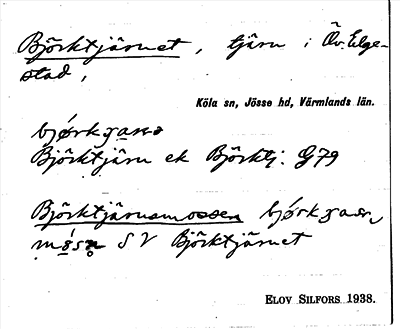 Björktjärnet, tjärn i Öv. Elge-
stad,
Köla sn, Jösse hd, Värmlands län.
Björktjärn ek Björktj. G79
Björktjärnsmossen
SV Björktjärnet
ELOV SILFORS 1938.